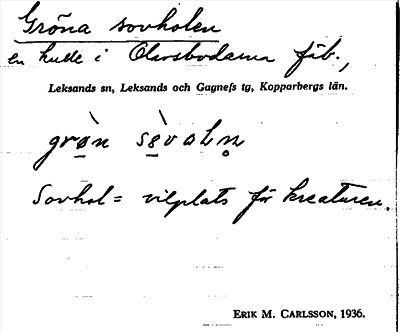 Gröna sovholen
en kulle i Olarsbodarna fäb.,
Leksands sn, Leksands och Gagnefs tg, Kopparbergs län.
grøn sèvoln
Sovhol = vilplats för kreaturen.
ERIK M. CARLSSON, 1936.